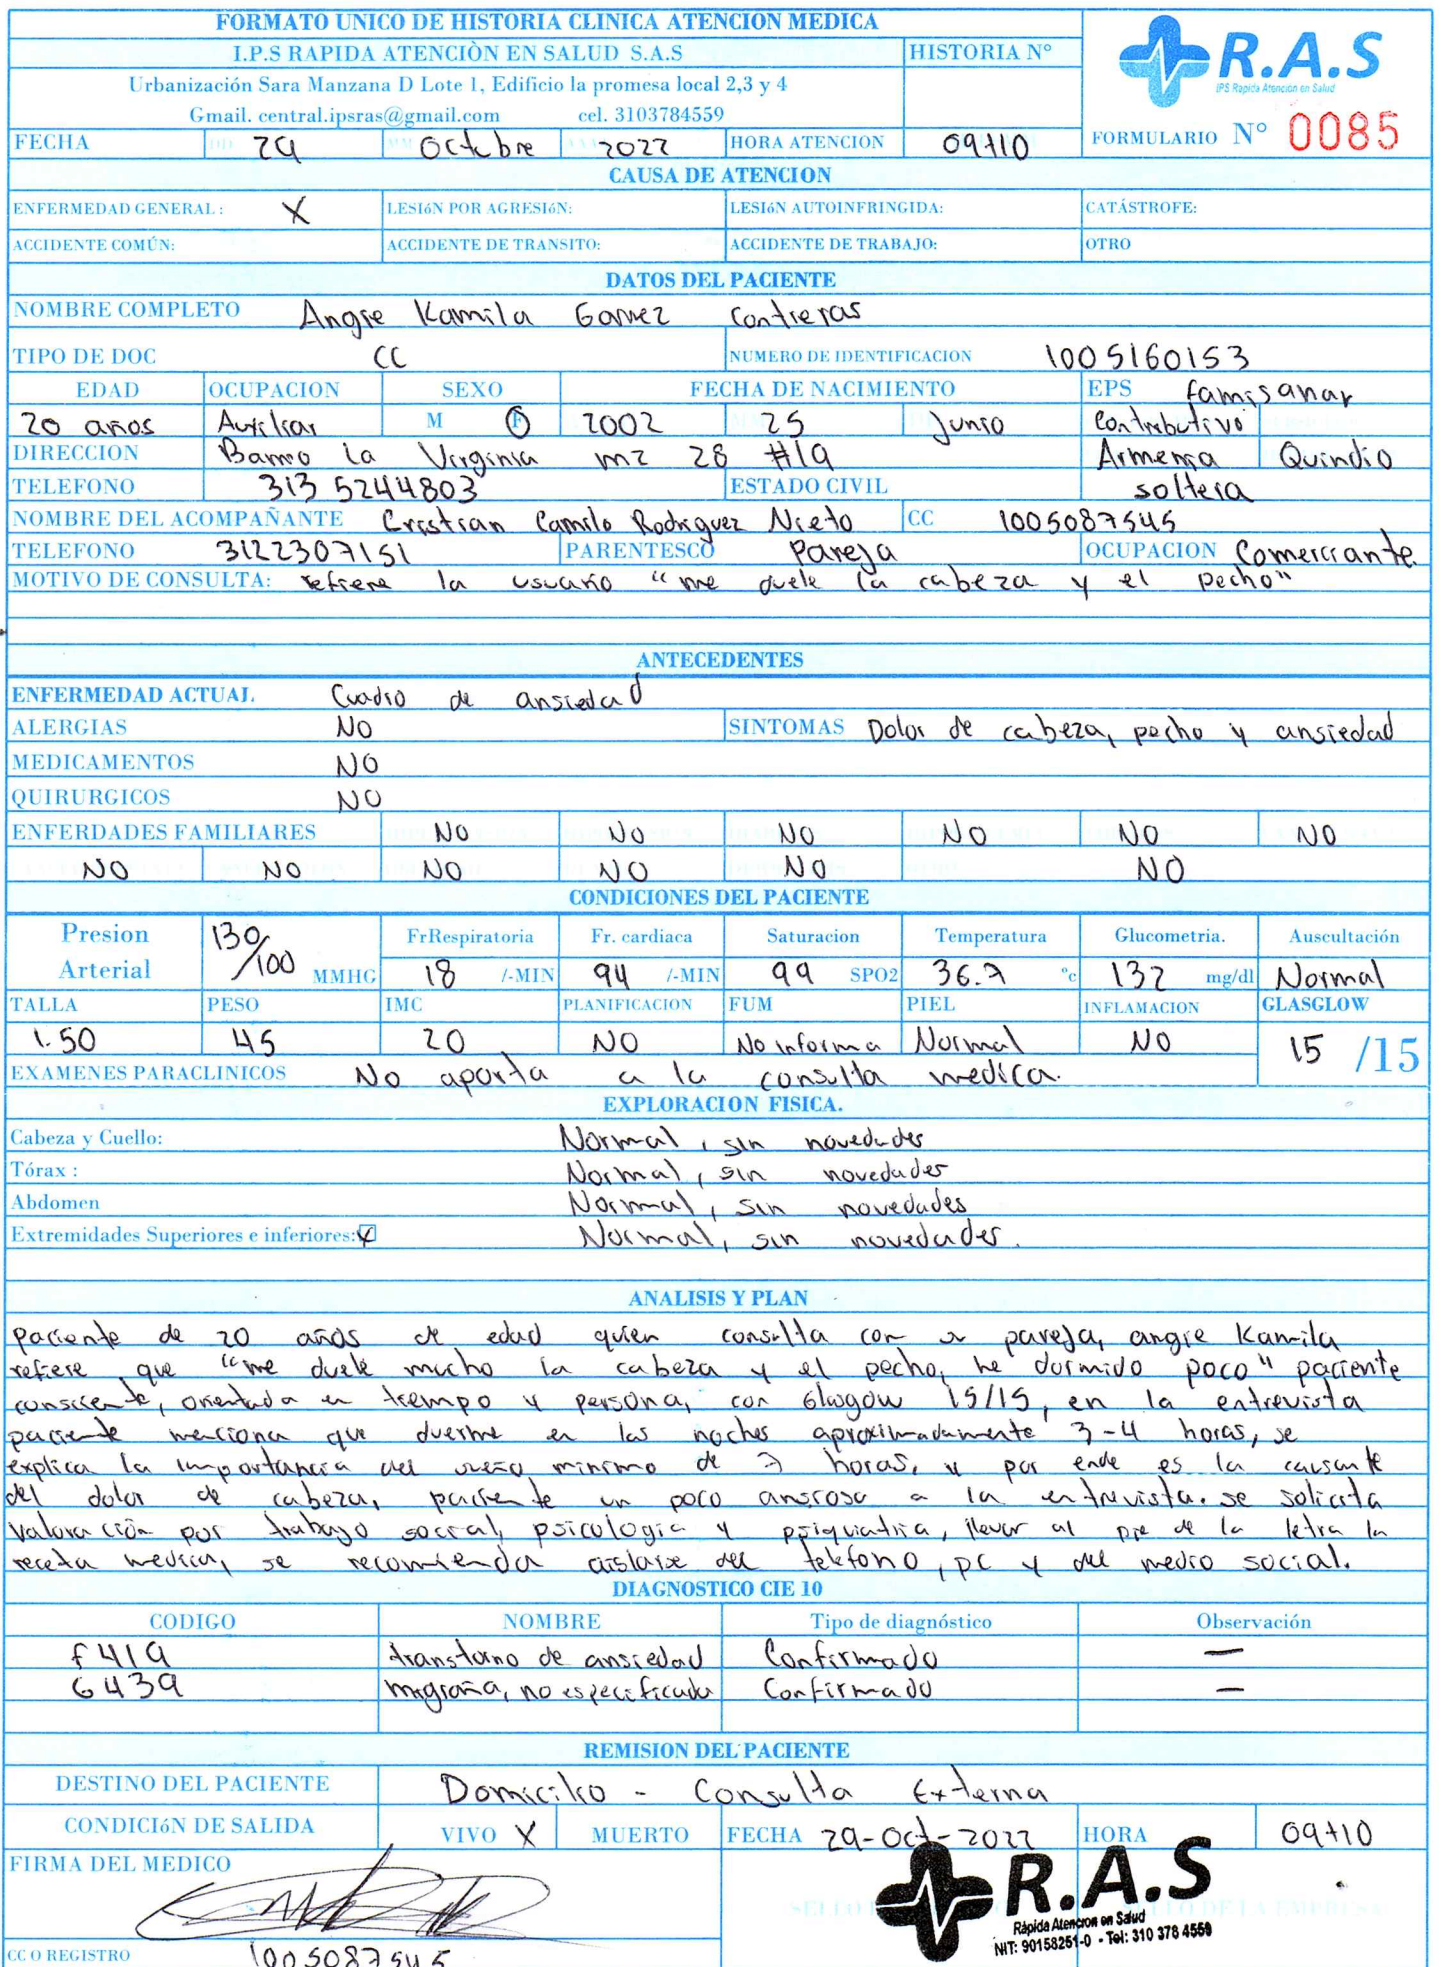 FORMATO UNICO DE HISTORIA CLINICA ATENCION MEDICA
I.P.S RAPIDA ATENCIÒN EN SALUD S.A.S HISTORIA N°
R.A.S
IPS Rapida Atencion en Salud
Urbanización Sara Manzana D Lote 1, Edificio la promesa local 2,3 y 4
Gmail. central.ipsras@gmail.com cel. 3103784559
FORMULARIO N° 0085
FECHA 29 Octubre 2022 HORA ATENCION 09+10
CAUSA DE ATENCION
ENFERMEDAD GENERAL : X LESIóN POR AGRESIóN: LESIóN AUTOINFRINGIDA: CATÁSTROFE:
ACCIDENTE COMÚN: ACCIDENTE DE TRANSITO: ACCIDENTE DE TRABAJO: OTRO
DATOS DEL PACIENTE
NOMBRE COMPLETO Angie Kamila Gamez Contreras
TIPO DE DOC CC NUMERO DE IDENTIFICACION 1005160153
EDAD OCUPACION SEXO FECHA DE NACIMIENTO EPS famisanar
20 años Auxiliar M F 2002 25 Junio Contributivo
DIRECCION Barrio La Virginia mz 28 #19 Armenia Quindio
TELEFONO 313 5244803 ESTADO CIVIL soltera
NOMBRE DEL ACOMPAÑANTE Cristian Camilo Rodriguez Nieto CC 1005087545
TELEFONO 3122307151 PARENTESCO Pareja OCUPACION Comerciante.
MOTIVO DE CONSULTA: refiere la usuario "me duele la cabeza y el pecho"
ANTECEDENTES
ENFERMEDAD ACTUAL Cuadro de ansiedad
ALERGIAS NO SINTOMAS Dolor de cabeza, pecho y ansiedad
MEDICAMENTOS NO
QUIRURGICOS NO
ENFERDADES FAMILIARES NO NO NO NO NO NO
NO NO NO NO NO NO
CONDICIONES DEL PACIENTE
Presion Arterial 130/100 MMHG FrRespiratoria Fr. cardiaca Saturacion Temperatura Glucometria. Auscultación
18 /-MIN 94 /-MIN 99 SPO2 36.7 °c 132 mg/dl Normal
TALLA PESO IMC PLANIFICACION FUM PIEL INFLAMACION GLASGLOW
1.50 45 20 NO No informa Normal NO 15 /15
EXAMENES PARACLINICOS No aporta a la consulta medica.
EXPLORACION FISICA.
Cabeza y Cuello: Normal, sin novedades
Tórax : Normal, sin novedades
Abdomen Normal, sin novedades
Extremidades Superiores e inferiores: X Normal, sin novedades.
ANALISIS Y PLAN
paciente de 20 años de edad quien consulta con su pareja, angie Kamila
refiere que "me duele mucho la cabeza y el pecho, he dormido poco" paciente
consciente, orientada en tiempo y persona, con Glasgow 15/15, en la entrevista
paciente menciona que duerme en las noches aproximadamente 3-4 horas, se
explica la importancia del sueño minimo de 7 horas, y por ende es la causante
del dolor de cabeza, paciente un poco ansiosa a la entrevista. se solicita
valoración por trabajo social, psicologia y psiquiatria, llevar al pie de la letra la
receta medica, se recomienda aislarse del telefono, pc y del medio social.
DIAGNOSTICO CIE 10
CODIGO NOMBRE Tipo de diagnóstico Observación
f419 transtorno de ansiedad Confirmado —
G439 migraña, no especificada Confirmado —
REMISION DEL PACIENTE
DESTINO DEL PACIENTE Domicilio - Consulta Externa
CONDICIóN DE SALIDA VIVO X MUERTO FECHA 29-Oct-2022 HORA 09+10
FIRMA DEL MEDICO
R.A.S
Rápida Atencion en Salud
NIT: 90158251-0 - Tel: 310 378 4559
CC O REGISTRO 1005087545